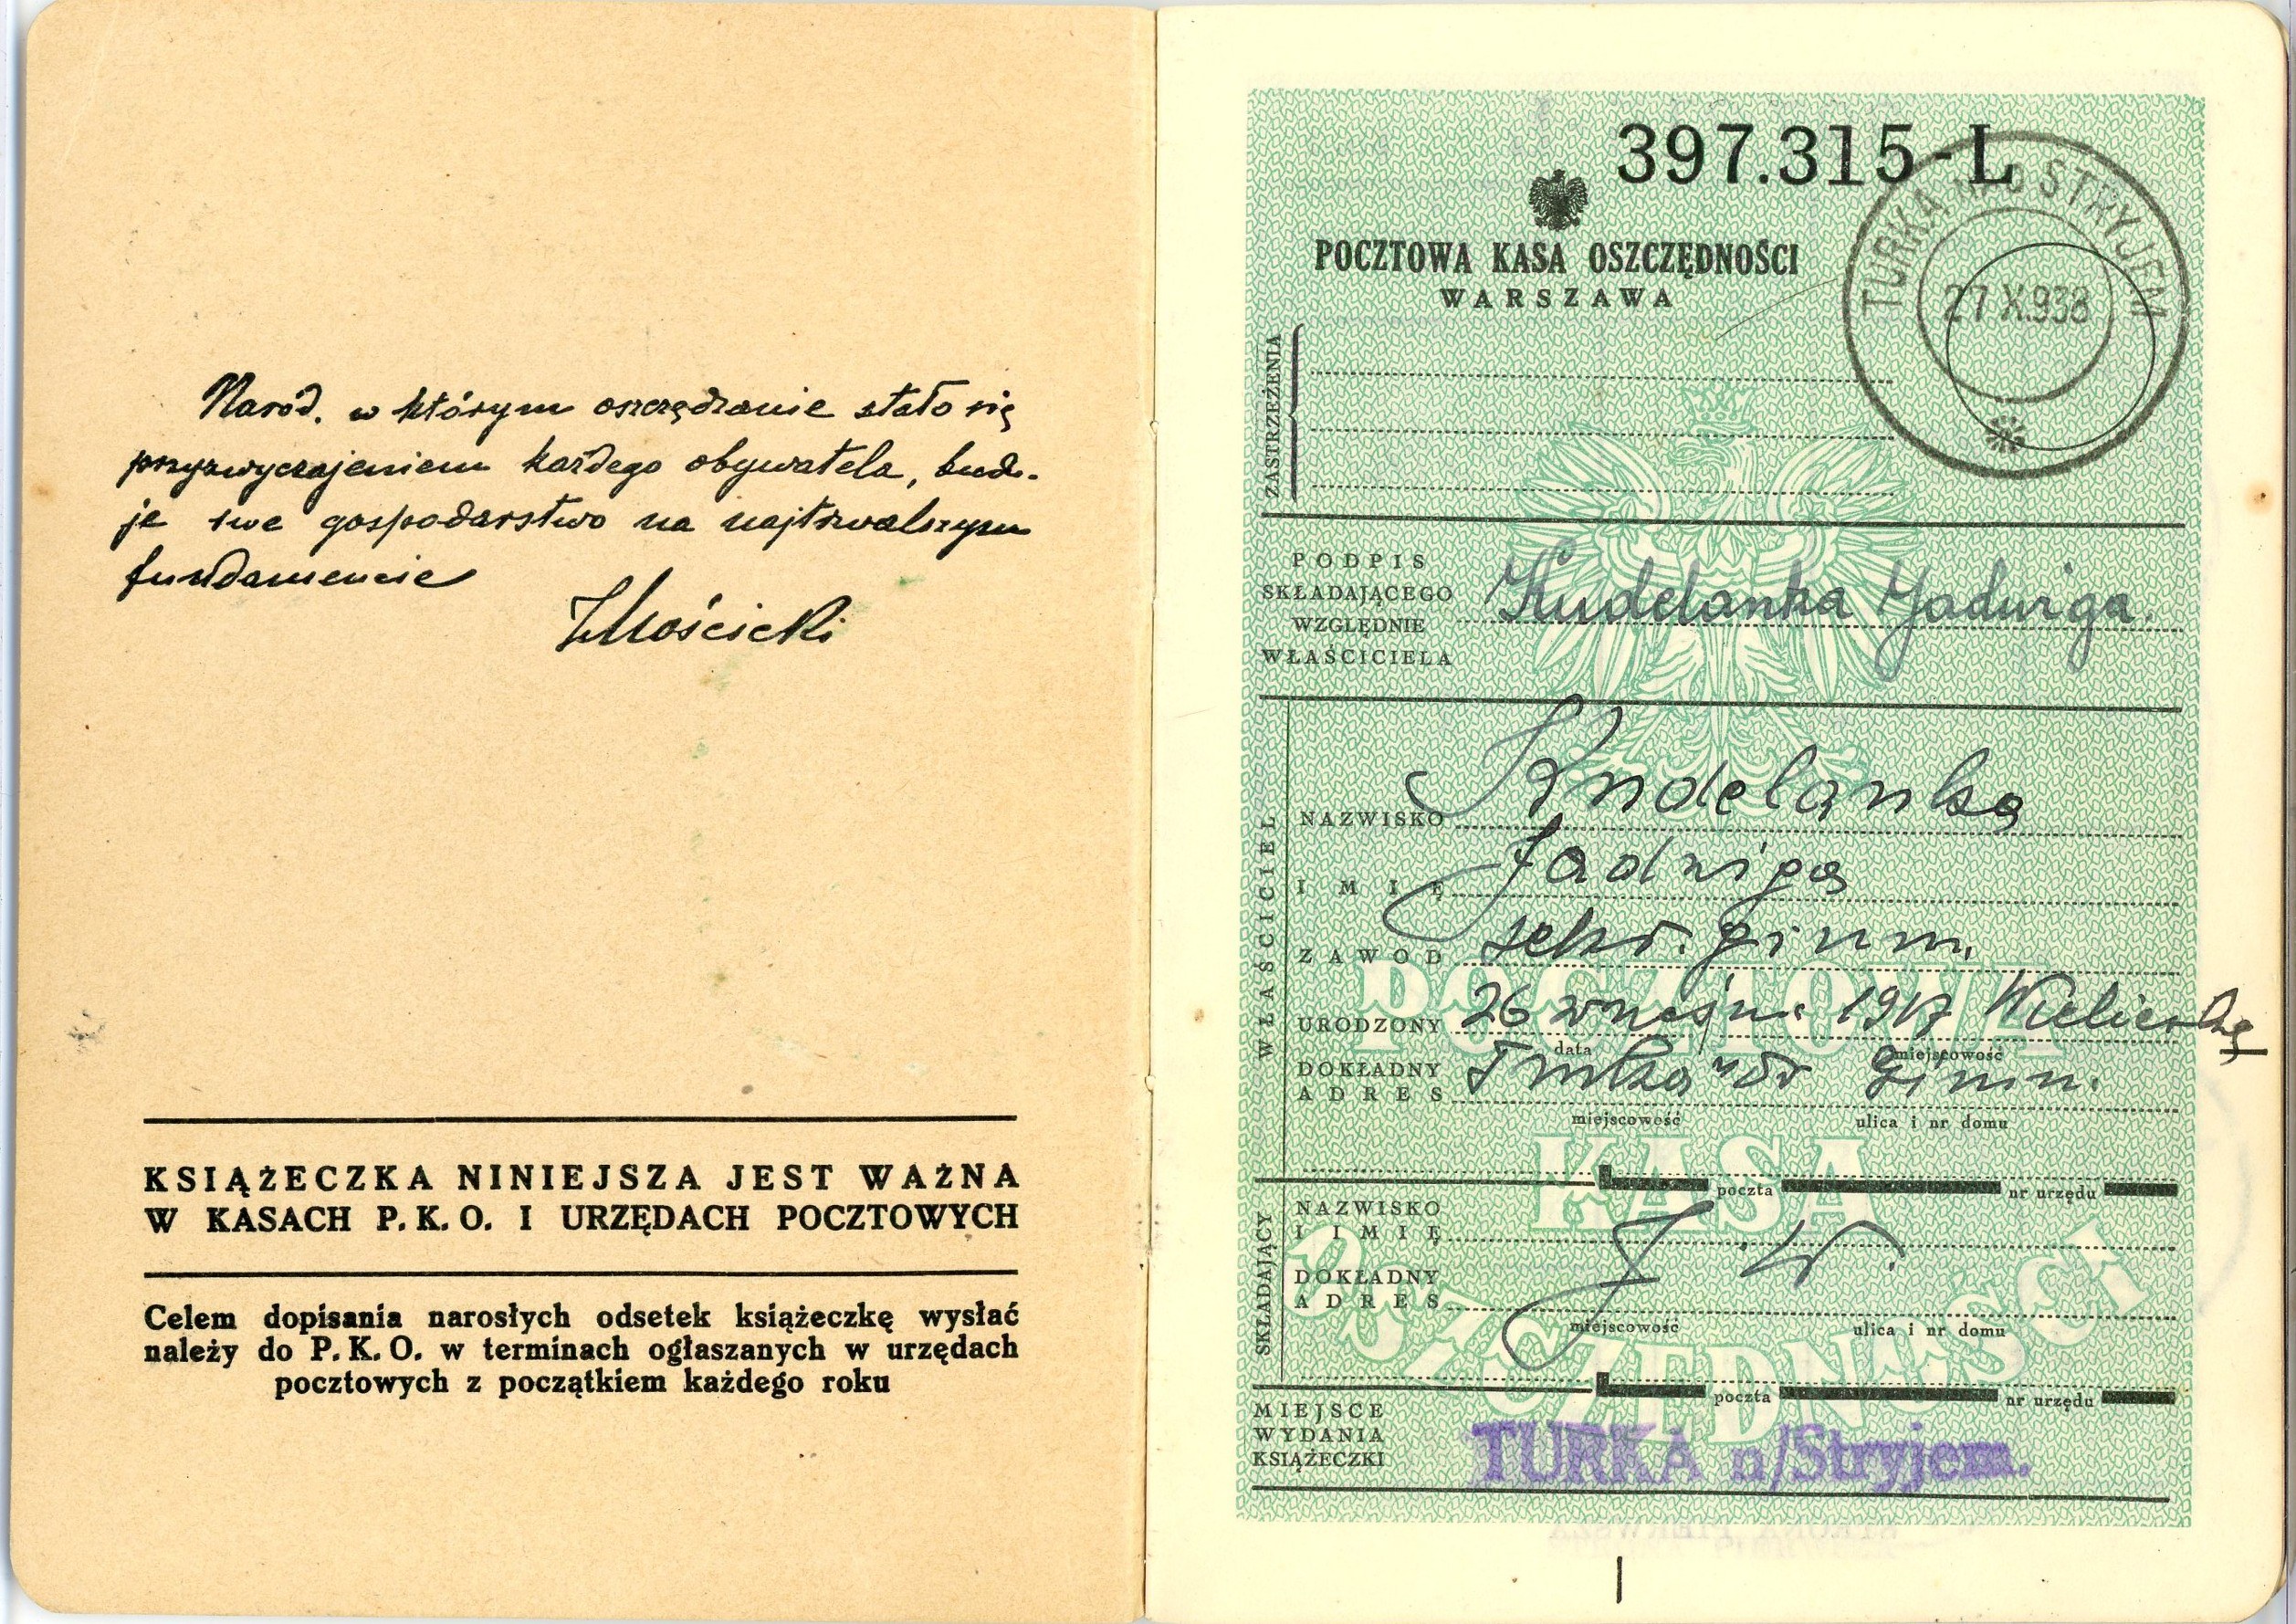 Naród, w którym oszczędzanie stało się
przyzwyczajeniem każdego obywatela, budu-
je swe gospodarstwo na najtrwalszym
fundamencie
IMościcki
KSIĄŻECZKA NINIEJSZA JEST WAŻNA
W KASACH P. K. O. I URZĘDACH POCZTOWYCH
Celem dopisania narosłych odsetek książeczkę wysłać
należy do P. K. O. w terminach ogłaszanych w urzędach
pocztowych z początkiem każdego roku
397.315-L
POCZTOWA KASA OSZCZĘDNOŚCI
WARSZAWA
TURKA NAD STRYJEM
27 X.938
ZASTRZEŻENIA
PODPIS
SKŁADAJĄCEGO
WZGLĘDNIE
WŁAŚCICIELA
Kudelanka Jadwiga.
WŁAŚCICIEL
NAZWISKO Kudelanka
IMIĘ Jadwiga
ZAWÓD sekr. gimn.
URODZONY 26 września 1917 Wieliczka
data miejscowość
DOKŁADNY
ADRES Turka n/Str Gimn.
miejscowość ulica i nr domu
poczta nr urzędu
SKŁADAJĄCY
NAZWISKO
I IMIĘ
J. W.
DOKŁADNY
ADRES
miejscowość ulica i nr domu
poczta nr urzędu
POCZTOWA
KASA
OSZCZĘDNOŚCI
MIEJSCE
WYDANIA
KSIĄŻECZKI
TURKA n/Stryjem.